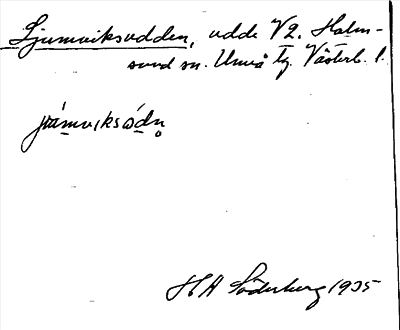 Ljumviksudden, udde V2. Holm-
sund sn. Umeå tg. Västerb. l.
jɯ́mviksödn̥
H A Söderberg 1935